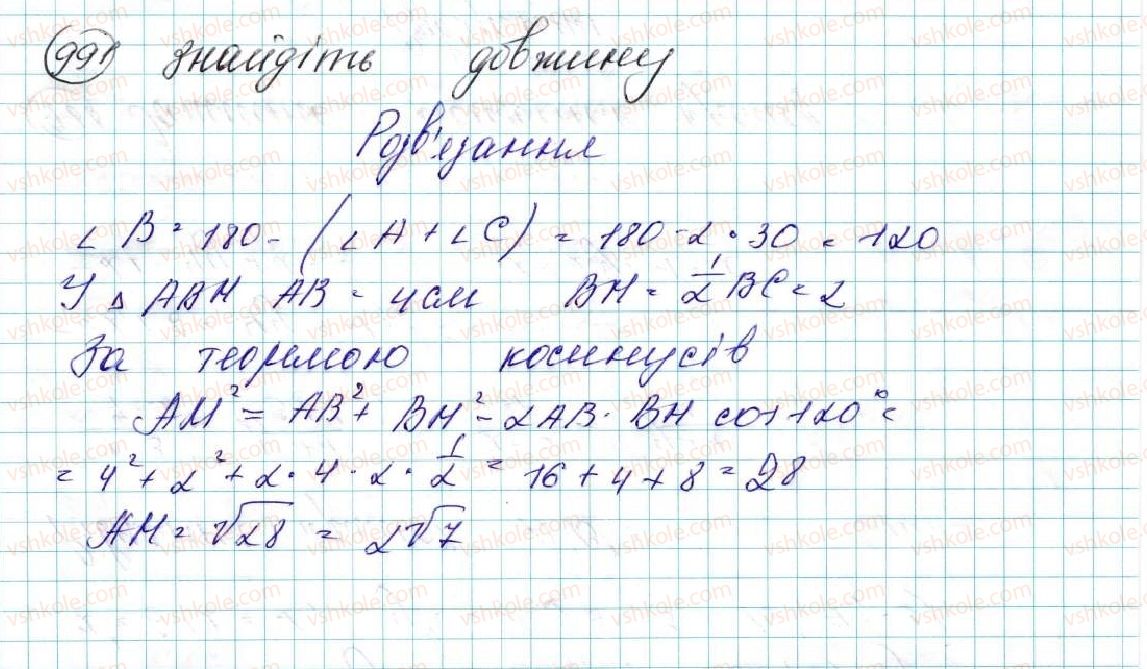 991 знайдіть довжину
Розв'язання
∠ B = 180 - (∠ A + ∠ C) = 180 - 2 · 30 = 120
У △ ABM AB = 4 см BM = 1/2 BC = 2
За теоремою косинусів
AM² = AB² + BM² - 2AB · BM cos 120° =
= 4² + 2² + 2 · 4 · 2 · 1/2 = 16 + 4 + 8 = 28
AM = √28 = 2√7
vshkole.com